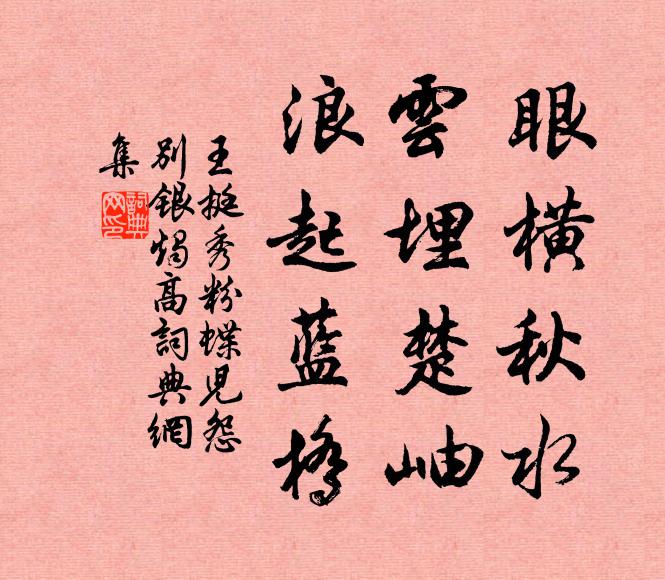 眼橫秋水
雲埋楚岫
浪起藍橋
王挺秀粉蝶兒怨
別銀燭高詞典網
集
詞典網印